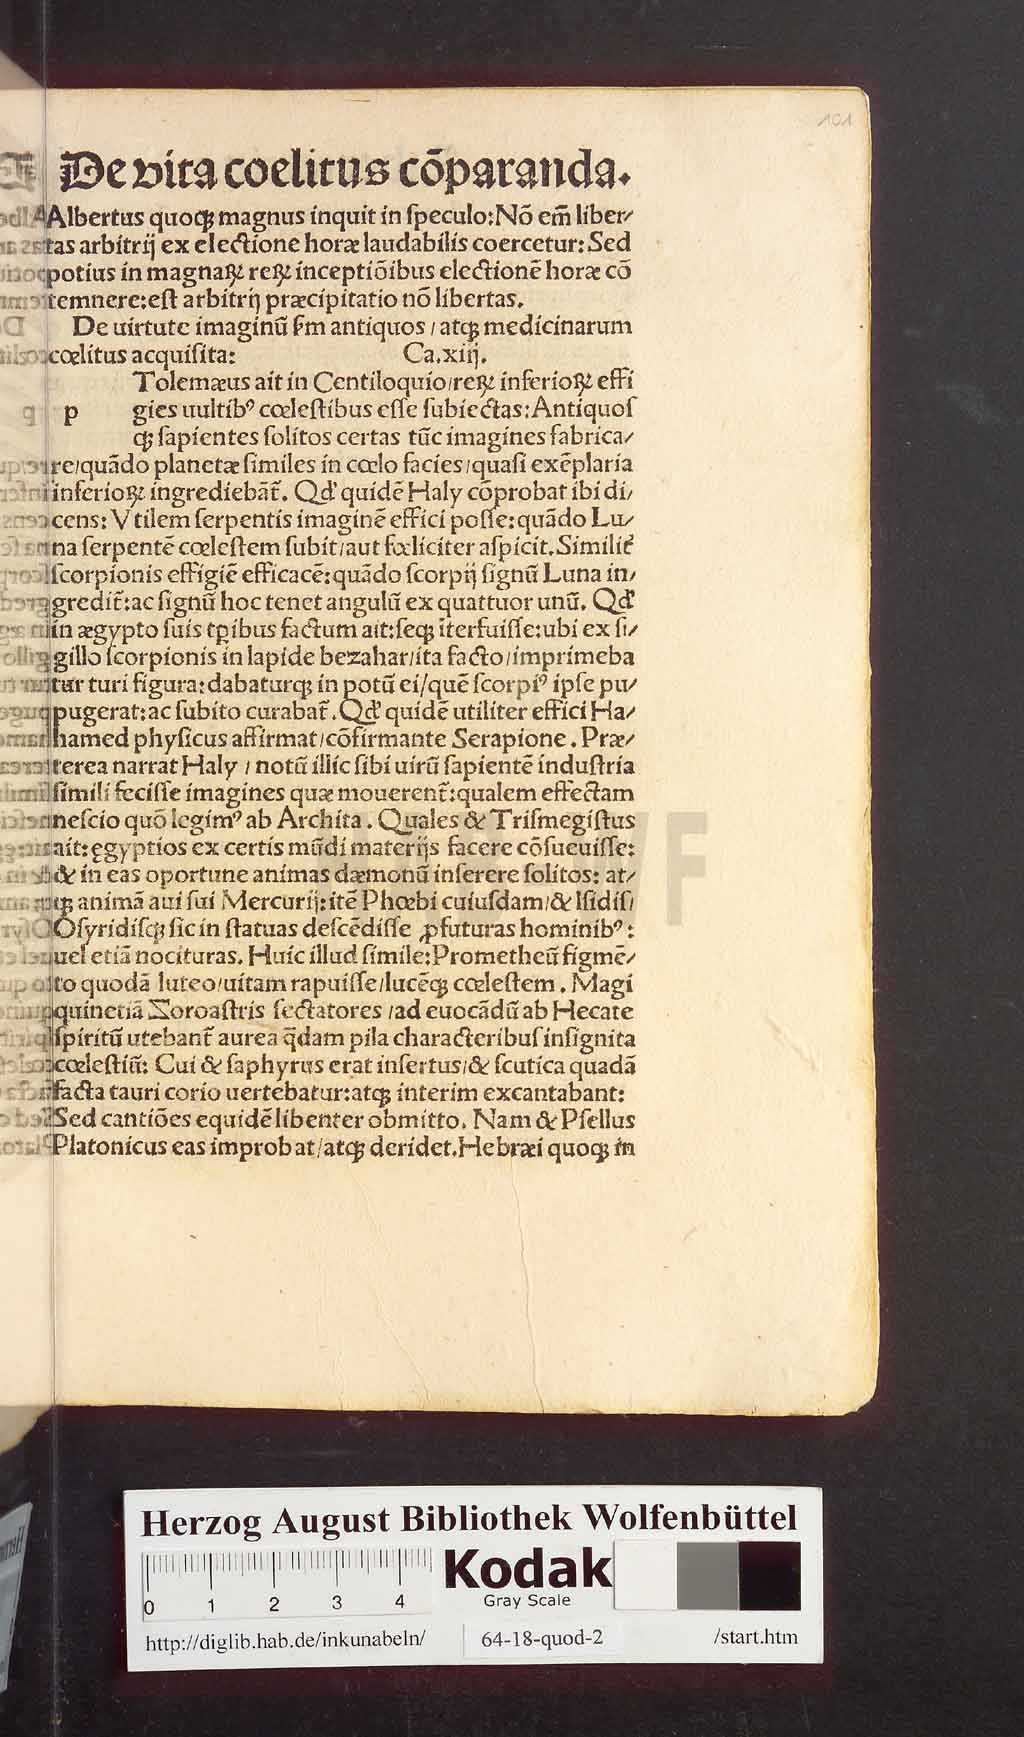 101
De vita coelitus cõparanda.
Albertus quoqꝫ magnus inquit in ſpeculo: Nõ em̃ liber⸗
tas arbitrij ex electione horæ laudabilis coercetur: Sed
potius in magnaꝝ reꝝ inceptiõibus electionẽ horæ cõ
temnere: eſt arbitrij præcipitatio nõ libertas.
De uirtute imaginũ ſm antiquos / atqꝫ medicinarum
cœlitus acquiſita: Ca.xiij.
Tolemæus ait in Centiloquio / reꝝ inferioꝝ effi
p gies uultibꝰ cœleſtibus eſſe ſubiectas: Antiquoſ
qꝫ ſapientes ſolitos certas tũc imagines fabrica⸗
re / quãdo planetæ ſimiles in cœlo facies / quaſi exẽplaria
inferioꝝ ingrediebãt̃. Qd' quidẽ Haly cõprobat ibi di⸗
cens: Vtilem ſerpentis imaginẽ effici poſſe: quãdo Lu⸗
na ſerpentẽ cœleſtem ſubit / aut fœliciter aſpicit. Similit̃
ſcorpionis effigiẽ efficacẽ: quãdo ſcorpij ſignũ Luna in⸗
gredit̃: ac ſignũ hoc tenet angulũ ex quattuor unũ. Qd'
in ægypto ſuis tꝑibus factum ait: ſeqꝫ ĩterfuiſſe: ubi ex ſi⸗
gillo ſcorpionis in lapide bezahar / ita facto / imprimeba
tur turi figura: dabaturqꝫ in potũ ei / quẽ ſcorpiꝰ ipſe pu⸗
pugerat: ac ſubito curabat̃. Qd' quidẽ utiliter effici Ha⸗
hamed phyſicus affirmat / cõfirmante Serapione. Præ⸗
terea narrat Haly / notũ illic ſibi uirũ ſapientẽ induſtria
ſimili feciſſe imagines quæ mouerent̃: qualem effectam
neſcio quõ legimꝰ ab Archita. Quales & Triſmegiſtus
ait: ęgyptios ex certis mũdi materijs facere cõſueuiſſe:
& in eas oportune animas dæmonũ inſerere ſolitos: at⸗
qꝫ animã aui ſui Mercurij: itẽ Phœbi cuiuſdam / & Iſidiſ /
Oſyridiſqꝫ ſic in ſtatuas deſcẽdiſſe ꝓfuturas hominibꝰ:
uel etiã nocituras. Huic illud ſimile: Prometheũ figmẽ⸗
to quodã luteo / uitam rapuiſſe / lucẽqꝫ cœleſtem. Magi
quinetiã Zoroaſtris ſectatores / ad euocãdũ ab Hecate
ſpiritũ utebant̃ aurea q̃dam pila characteribuſ inſignita
cœleſtiũ: Cui & ſaphyrus erat inſertus / & ſcutica quadã
facta tauri corio uertebatur: atqꝫ interim excantabant:
Sed cantiões equidẽ libenter obmitto. Nam & Pſellus
Platonicus eas improbat / atqꝫ deridet. Hebræi quoqꝫ in
Herzog August Bibliothek Wolfenbüttel
Kodak
Gray Scale
0 1 2 3 4
http://diglib.hab.de/inkunabeln/ 64-18-quod-2 /start.htm